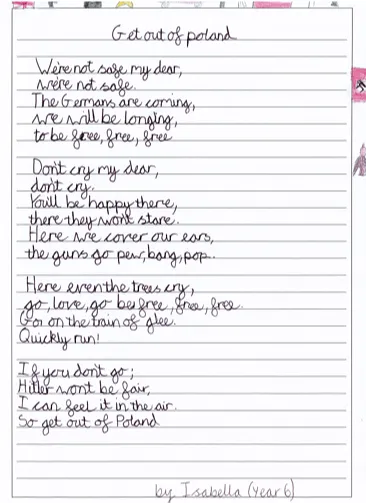 Get out of poland
We're not safe my dear,
we're not safe.
The Germans are coming,
we will be longing,
to be free, free, free
Don't cry my dear,
don't cry.
You'll be happy there,
there they won't stare.
Here we cover our ears,
the guns go pew, bang, pop.
Here even the trees cry,
go, love, go be free, free, free.
Go on the train of glee.
Quickly run!
If you don't go;
Hitler won't be fair,
I can feel it in the air.
So get out of Poland
by Isabella (Year 6)